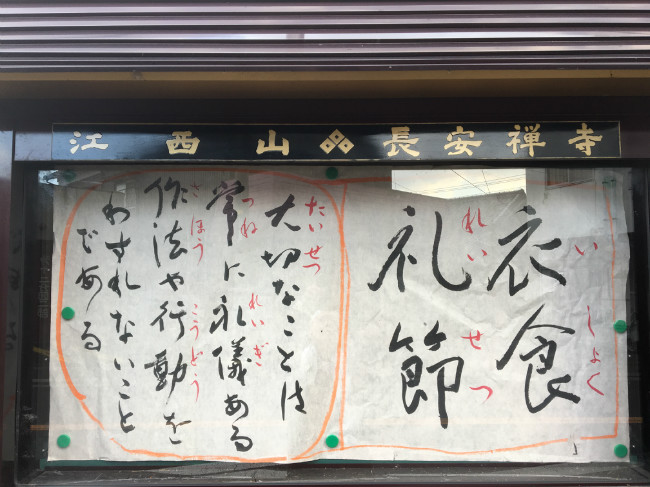 江西山 長安禅寺
衣食
いしょく
礼節
れいせつ
大切なことは
たいせつ
常に礼儀ある
つね れいぎ
作法や行動を
さほう こうどう
わすれないこと
である